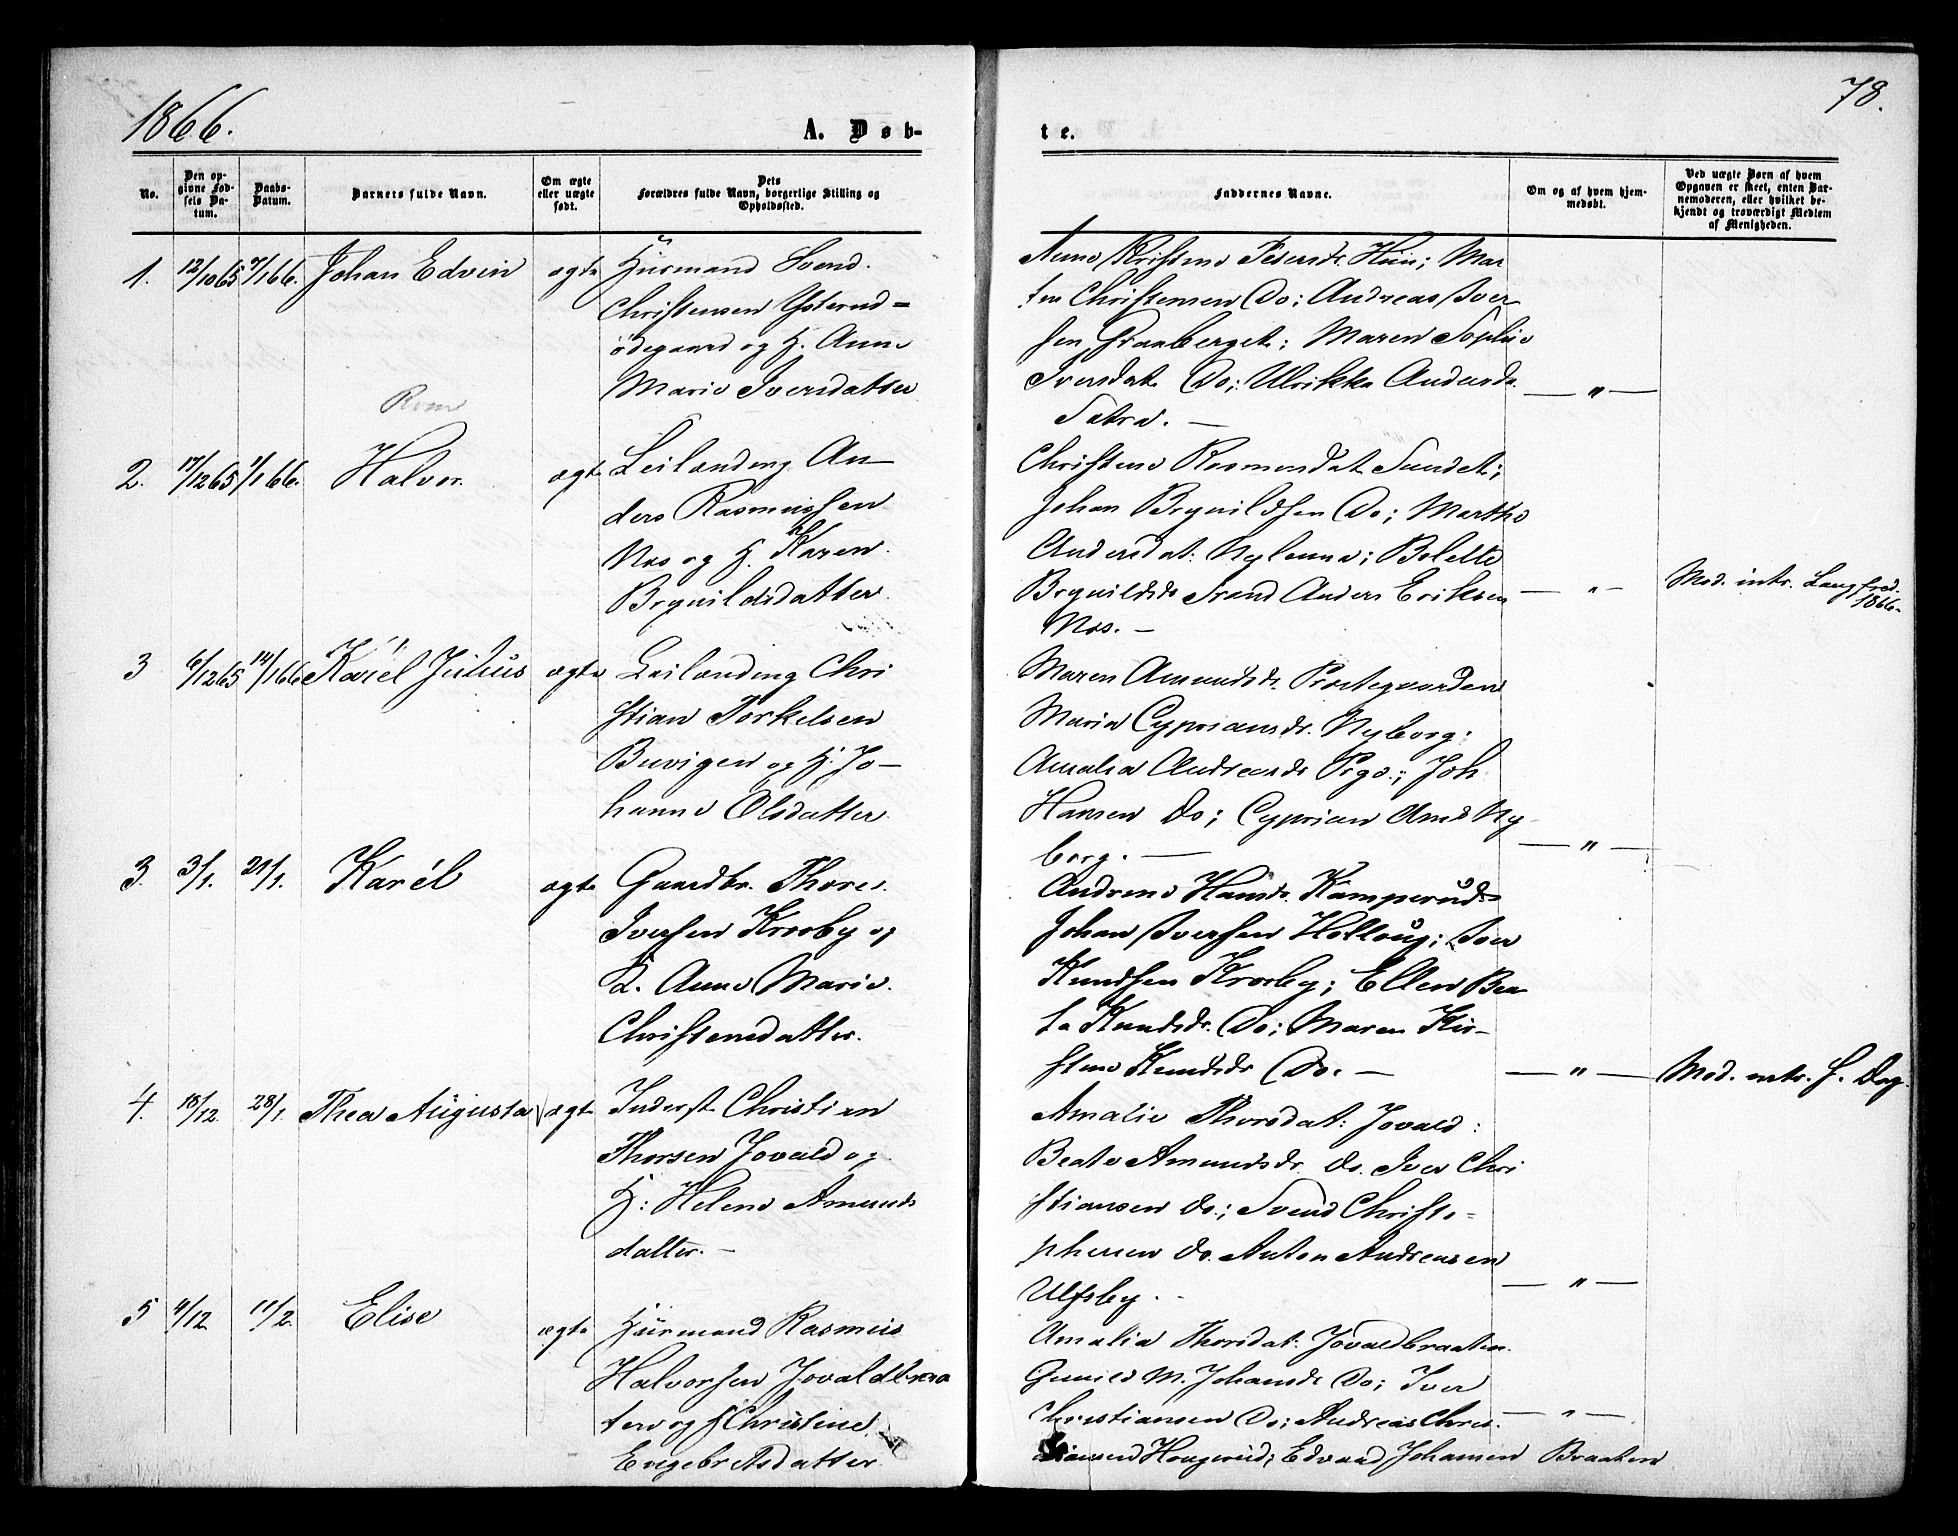 1866.
78.
A. Døb-
te.
No.
Den op-
givne Fød-
sels Da-
tum.
Daabs-
Datum.
Barnets fulde Navn.
Om ægte
eller uægte
født.
Dets
Forældres fulde Navn, borgerlige Stilling og
Opholdssted.
Faddernes Navne.
Om og af hvem hjem-
medøbt.
Ved uægte Børn af hvem
Opgaven er skeet, enten Bar-
nemoderen, eller hvilket be-
kjendt og troværdigt Medlem
af Menigheden.
1. 12/10 65 7/1 66. Johan Edvin ægte Huusmand Svend
Christensen Ysterud=
ødegaard og H. Anne
Marie Iversdatter
Anne Kristine Pedersdr. Huun; Mar
ten Christensen Do; Andreas Iver
sen Graaberget; Maren Sophie
Iversdat. Do; Ulrikke Andersdr.
Sætra. —
— " —
2. 17/12 65 1/1 66. Halvor. ægte Leilænding An—
ders Rasmussen
Næs og H. Karen
Brynildsdatter.
Christine Rasmusdat. Sundet;
Johan Brynildsen Do; Marthe
Andersdat. Nylænna; Bolette
Brynildsdr. Anders Eriksen
Næs. —
— " —
Mod. intr. Langfred.
1866.
3 6/12 65 14/1 66 Karel Julius ægte Leilænding Chri
stian Torkelsen
Buvigen og H. Jo—
hanne Olsdatter.
Maren Amundsdr. Præstegaarden
Maria Cypriansdr. Nyborg;
Amalia Andreasdr. Prgd.; Joh.
Hansen Do; Cyprian Amds. Ny
borg. —
— " —
3. 3/1. 21/1. Karel ægte Gaardbr. Thore
Iversen Krosby og
K. Anne Marie
Christensdatter.
Andrine Hansdr. Kamperud;
Johan Iversen Helloug; Iver
Knudsen Krosby; Ellen Bea
te Knudsdr. Do; Maren Kir—
stine Knudsdr. Do. —
— " —
Mod. intr. s. Dag.
4. 18/12. 28/1. Thea Augusta ægte Inderst Christian
Thorsen Jovald og
H: Helene Amunds
datter. —
Amalie Thorsdat: Jovald:
Beate Amundsdr. Do. Iver Chri
stiansen Do.; Svend Christo=
phersen Do. Anton Andreasen
Ulfsby. —
— " —
5 4/12 11/2. Elise ægte Huusmand Rasmus
Halvorsen Jovaldbraa
ten og H Christine
Engebretsdatter
Amalia Thorsdat: Jovaldbraaten
Gunild M. Johansdr. Do; Iver
Christiansen Do; Andreas Chris
tiansen Haugerud; Edvard Johansen Braaten
— " —